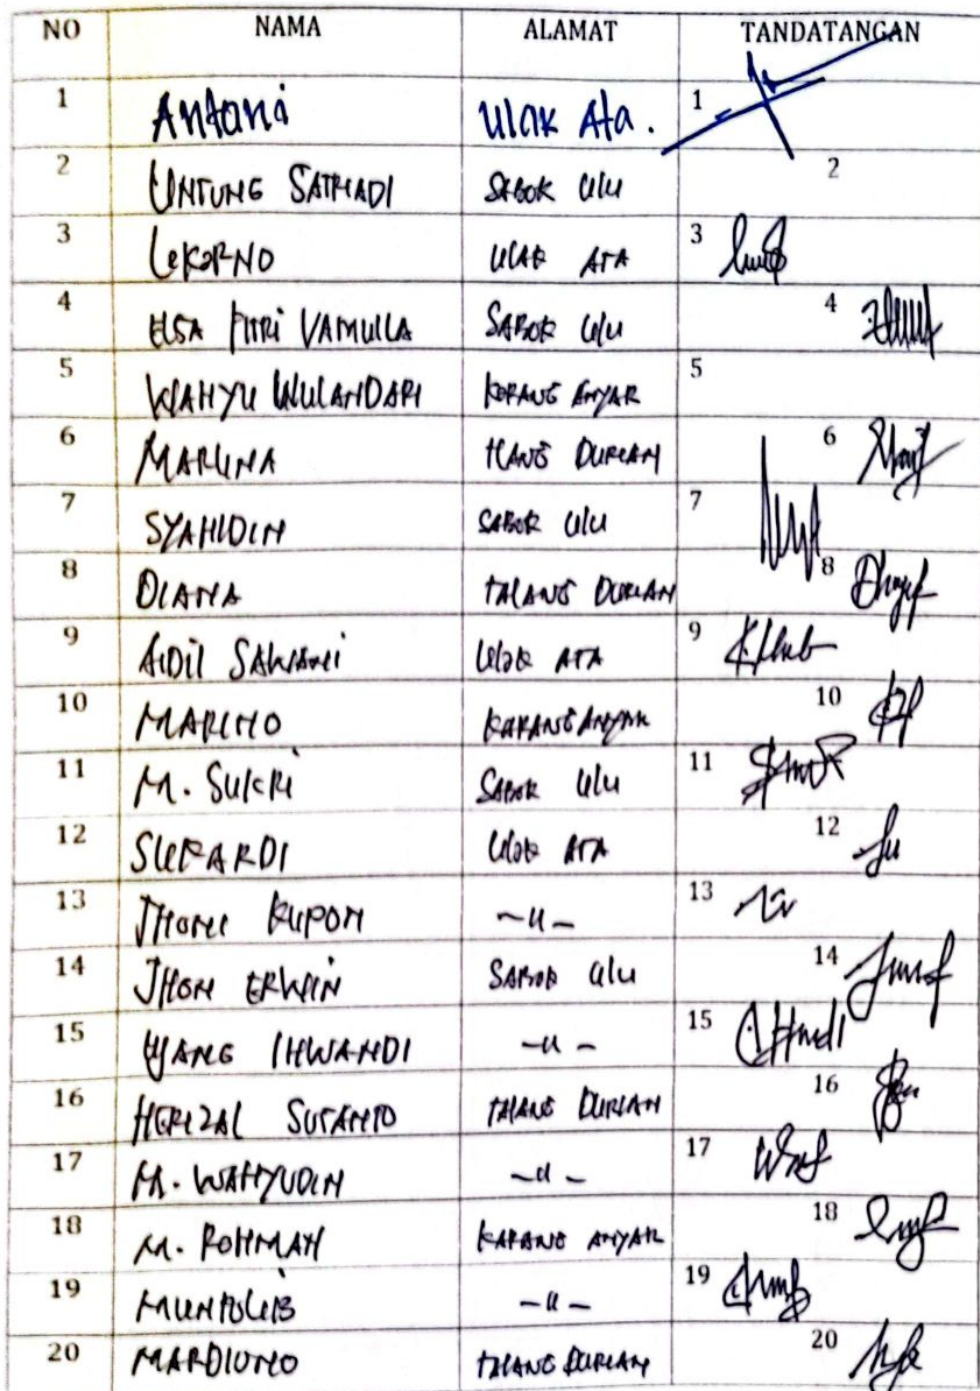 NO NAMA ALAMAT TANDATANGAN
1 Antoni Ulak Ata. 1
2 UNTUNG SATRIADI SABOK ULU 2
3 LEKARNO ULAK ATA 3
4 ELSA FITRI VAMULLA SABOK ULU 4
5 WAHYU WULANDARI KARANG ANYAR 5
6 MARLINA TLANG DURIAN 6
7 SYAHIDIN SABOK ULU 7
8 DIANA TALANG DURIAN 8
9 AIDIL ULAK ATA 9
10 MARINO KARANG ANYAR 10
11 M. SUKRI SABOK ULU 11
12 SUPARDI ULAK ATA 12
13 JHONI KUPON -〃- 13
14 JHON ERWIN SABOK ULU 14
15 YJANG IHWANDI -〃- 15
16 HERIZAL SUTANTO TALANG DURIAN 16
17 M. WAHYUDIN -〃- 17
18 M. ROHMAN KARANG ANYAR 18
19 MUNTOLIB -〃- 19
20 MARDIONO TALANG DURIAN 20